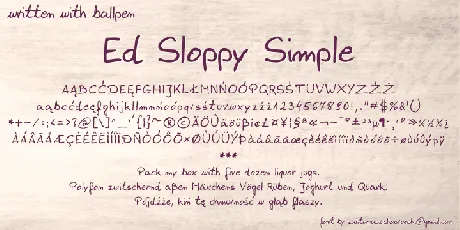 written with ballpen
Ed Sloppy Simple
AĄBCĆDEĘFGHIJKLŁMNŃOÓPQRSŚTUVWXYZŻŹ
aąbcćdeęfghijklłmnńoópqrsśtuvwxyzżź1234567890!,."#$%&'()
ÀÁÂÃÄÅÆÇÈÉÊËÌÍÎÏÐÑÒÓÔÕÖרÙÚÛÜÝÞàáâãäåæçèéêëìíîïðñòóôõö÷øùúûüýþÿ
***
Pack my box with five dozen liquor jugs.
Polyfon zwitschernd aßen Mäxchens Vögel Rüben, Joghurt und Quark.
Pójdźże, kiń tę chmurność w głąb flaszy.
font by